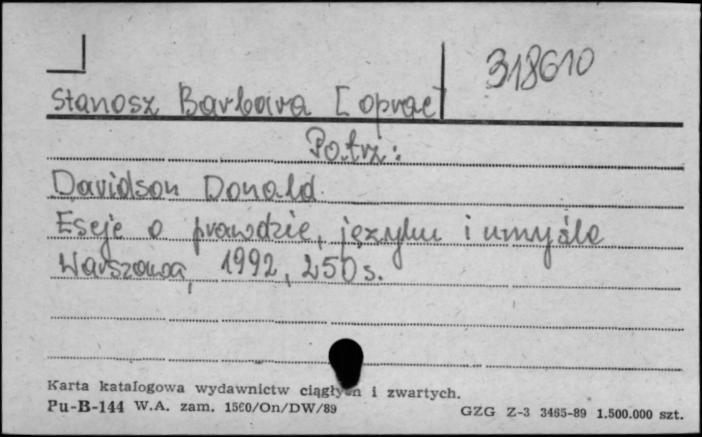 318610
Stanosz Barbara [oprac]
Patrz:
Davidson Donald.
Eseje o prawdzie, języku i umyśle
Warszawa, 1992, 250 s.
Karta katalogowa wydawnictw ciągłych i zwartych.
Pu-B-144 W.A. zam. 1560/On/DW/89 GZG Z-3 3465-89 1.500.000 szt.